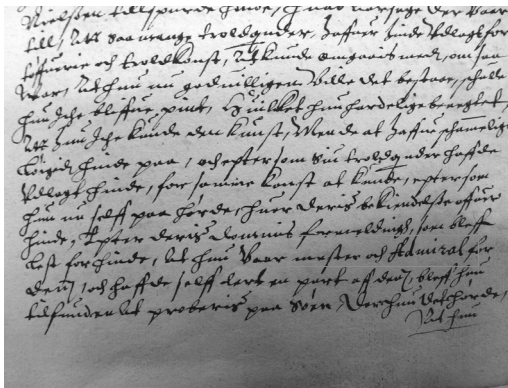 Nielssøn tilspurde hinde, huad aarsage der vaar
till, Att saa mange troldquinder, haffuer hinde Vdlagt for
tofuerie och troldkonst, At kunde omgaais med, om saa
Var, At hun nu godvilligen Ville det bestaae, schulle
hun Iche bliffue pint, Huilket hun hardelige benegtet,
Att hun Iche kunde den kunst, Men de at haffue schammelig
løigid hinde paa, och epter som Siu troldquinder haffde
Vdlagt hinde, for samme konst at kunde, epter som
hun nu self paa hørde, huer deris bekiendelse offuer
hinde, Epter deris Dommis formelding, som bleff
lest for hinde, At hun Vaar mester och Admiral for
dem, och haffde self lert en part aff dem, bleff hun
tilfunden at proberis paa Søen, Der hun det hørde,
Att hun